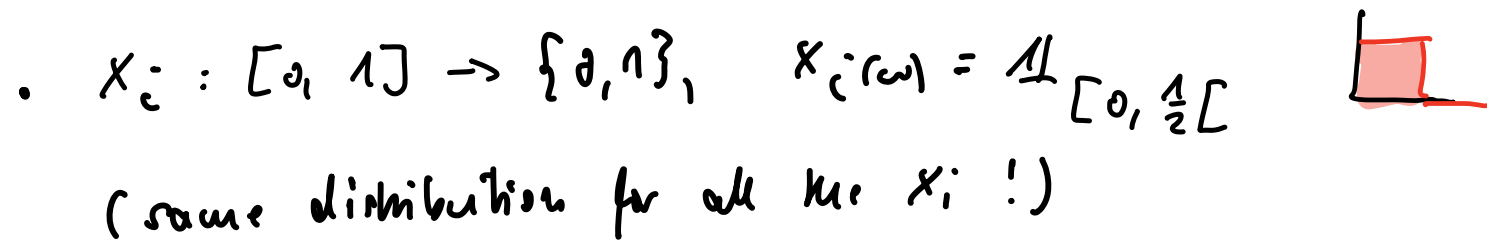 • X_i : [0, 1] → {0,1}, X_i(ω) = 𝟙_[0, 1/2[
(same distribution for all the X_i !)